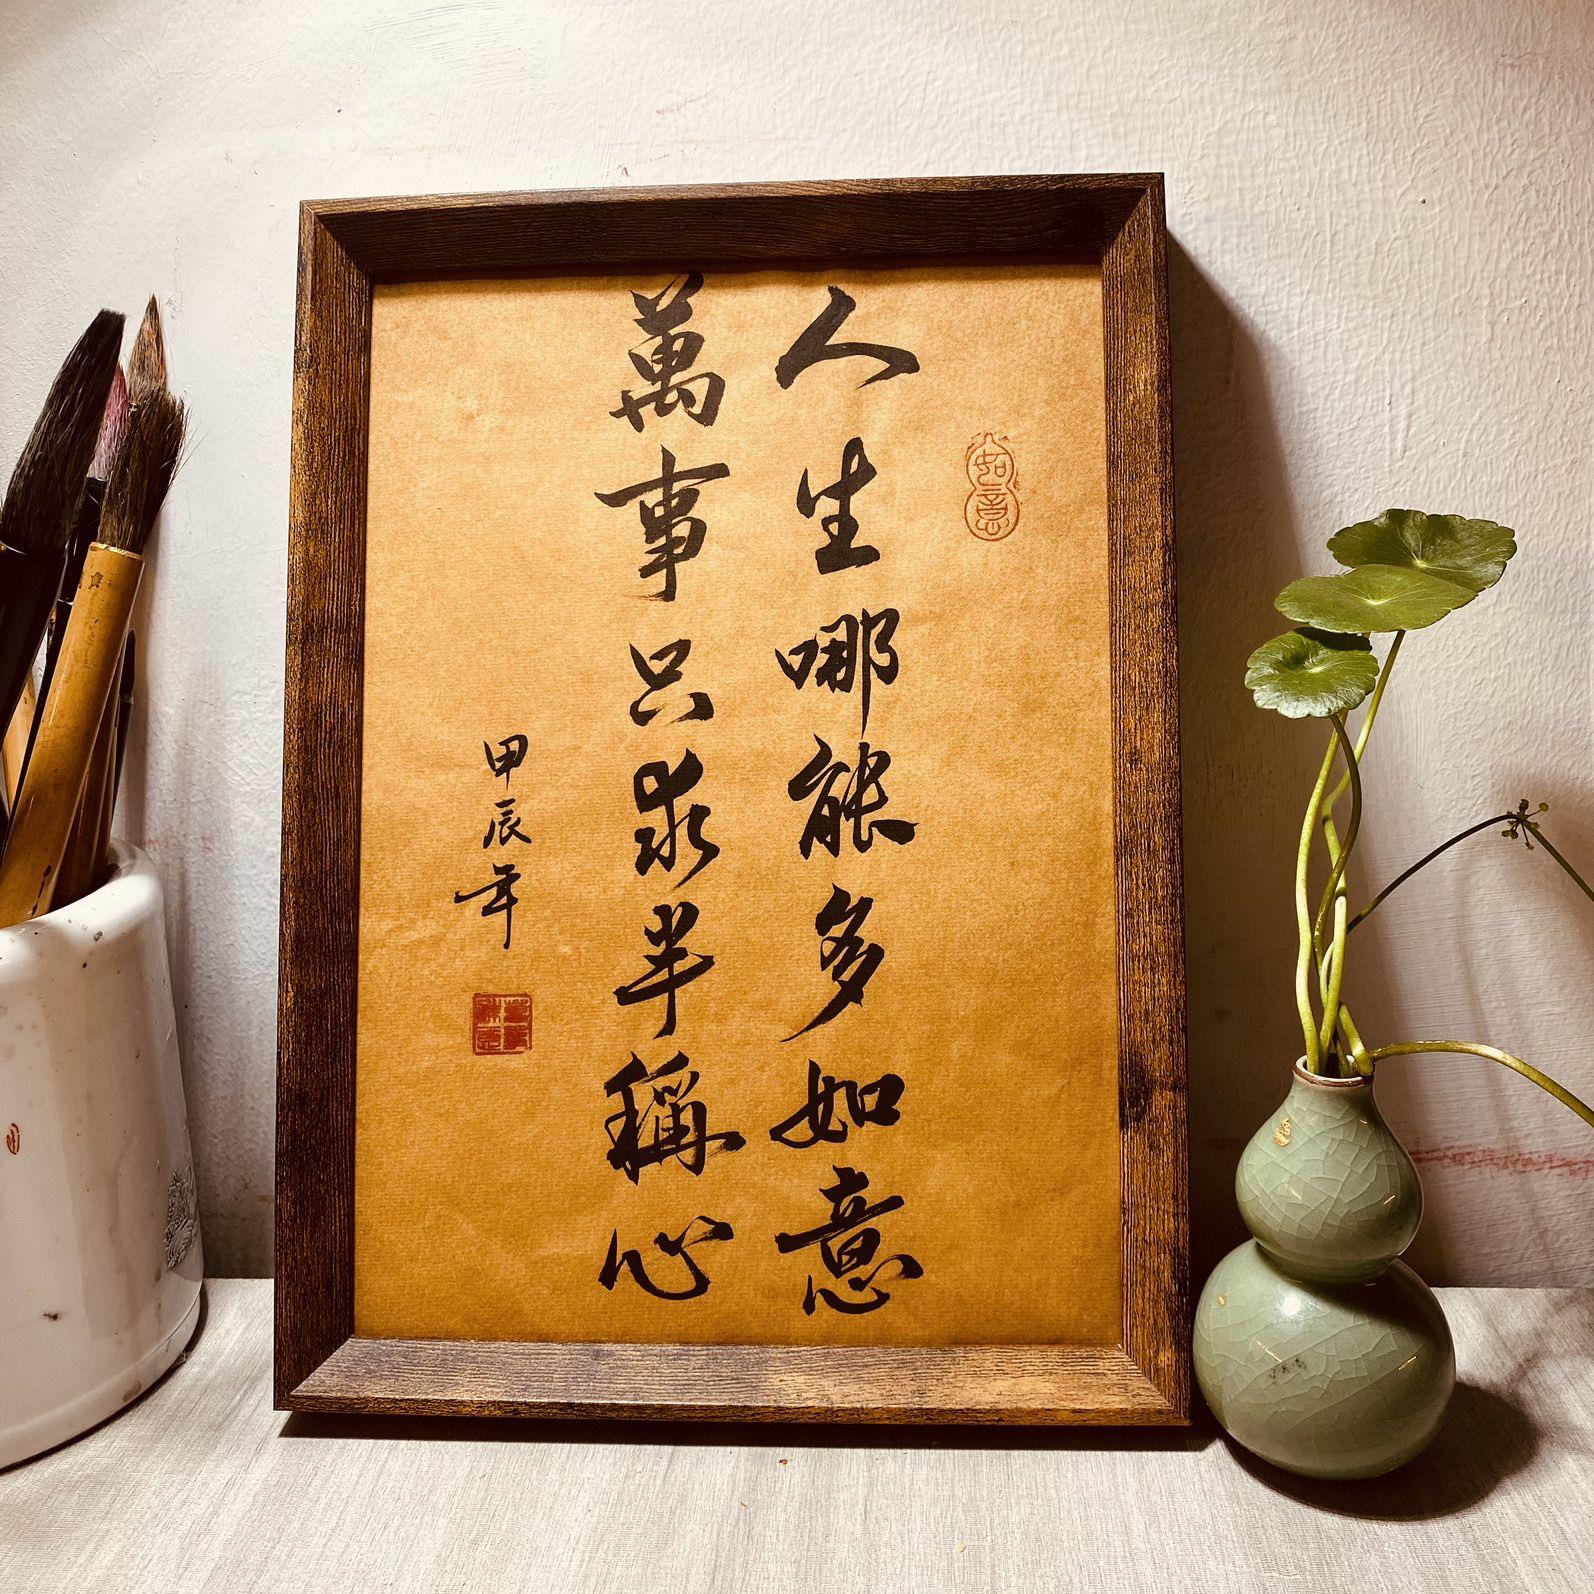 人生哪能多如意
萬事只求半稱心
甲辰年
如意